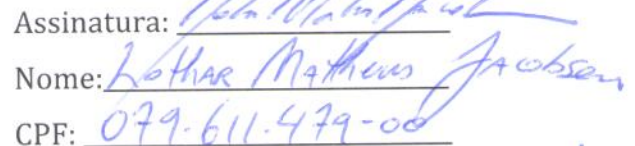 Assinatura:
Nome: Lothar Matheus Jacobsen
CPF: 079.611.479-00